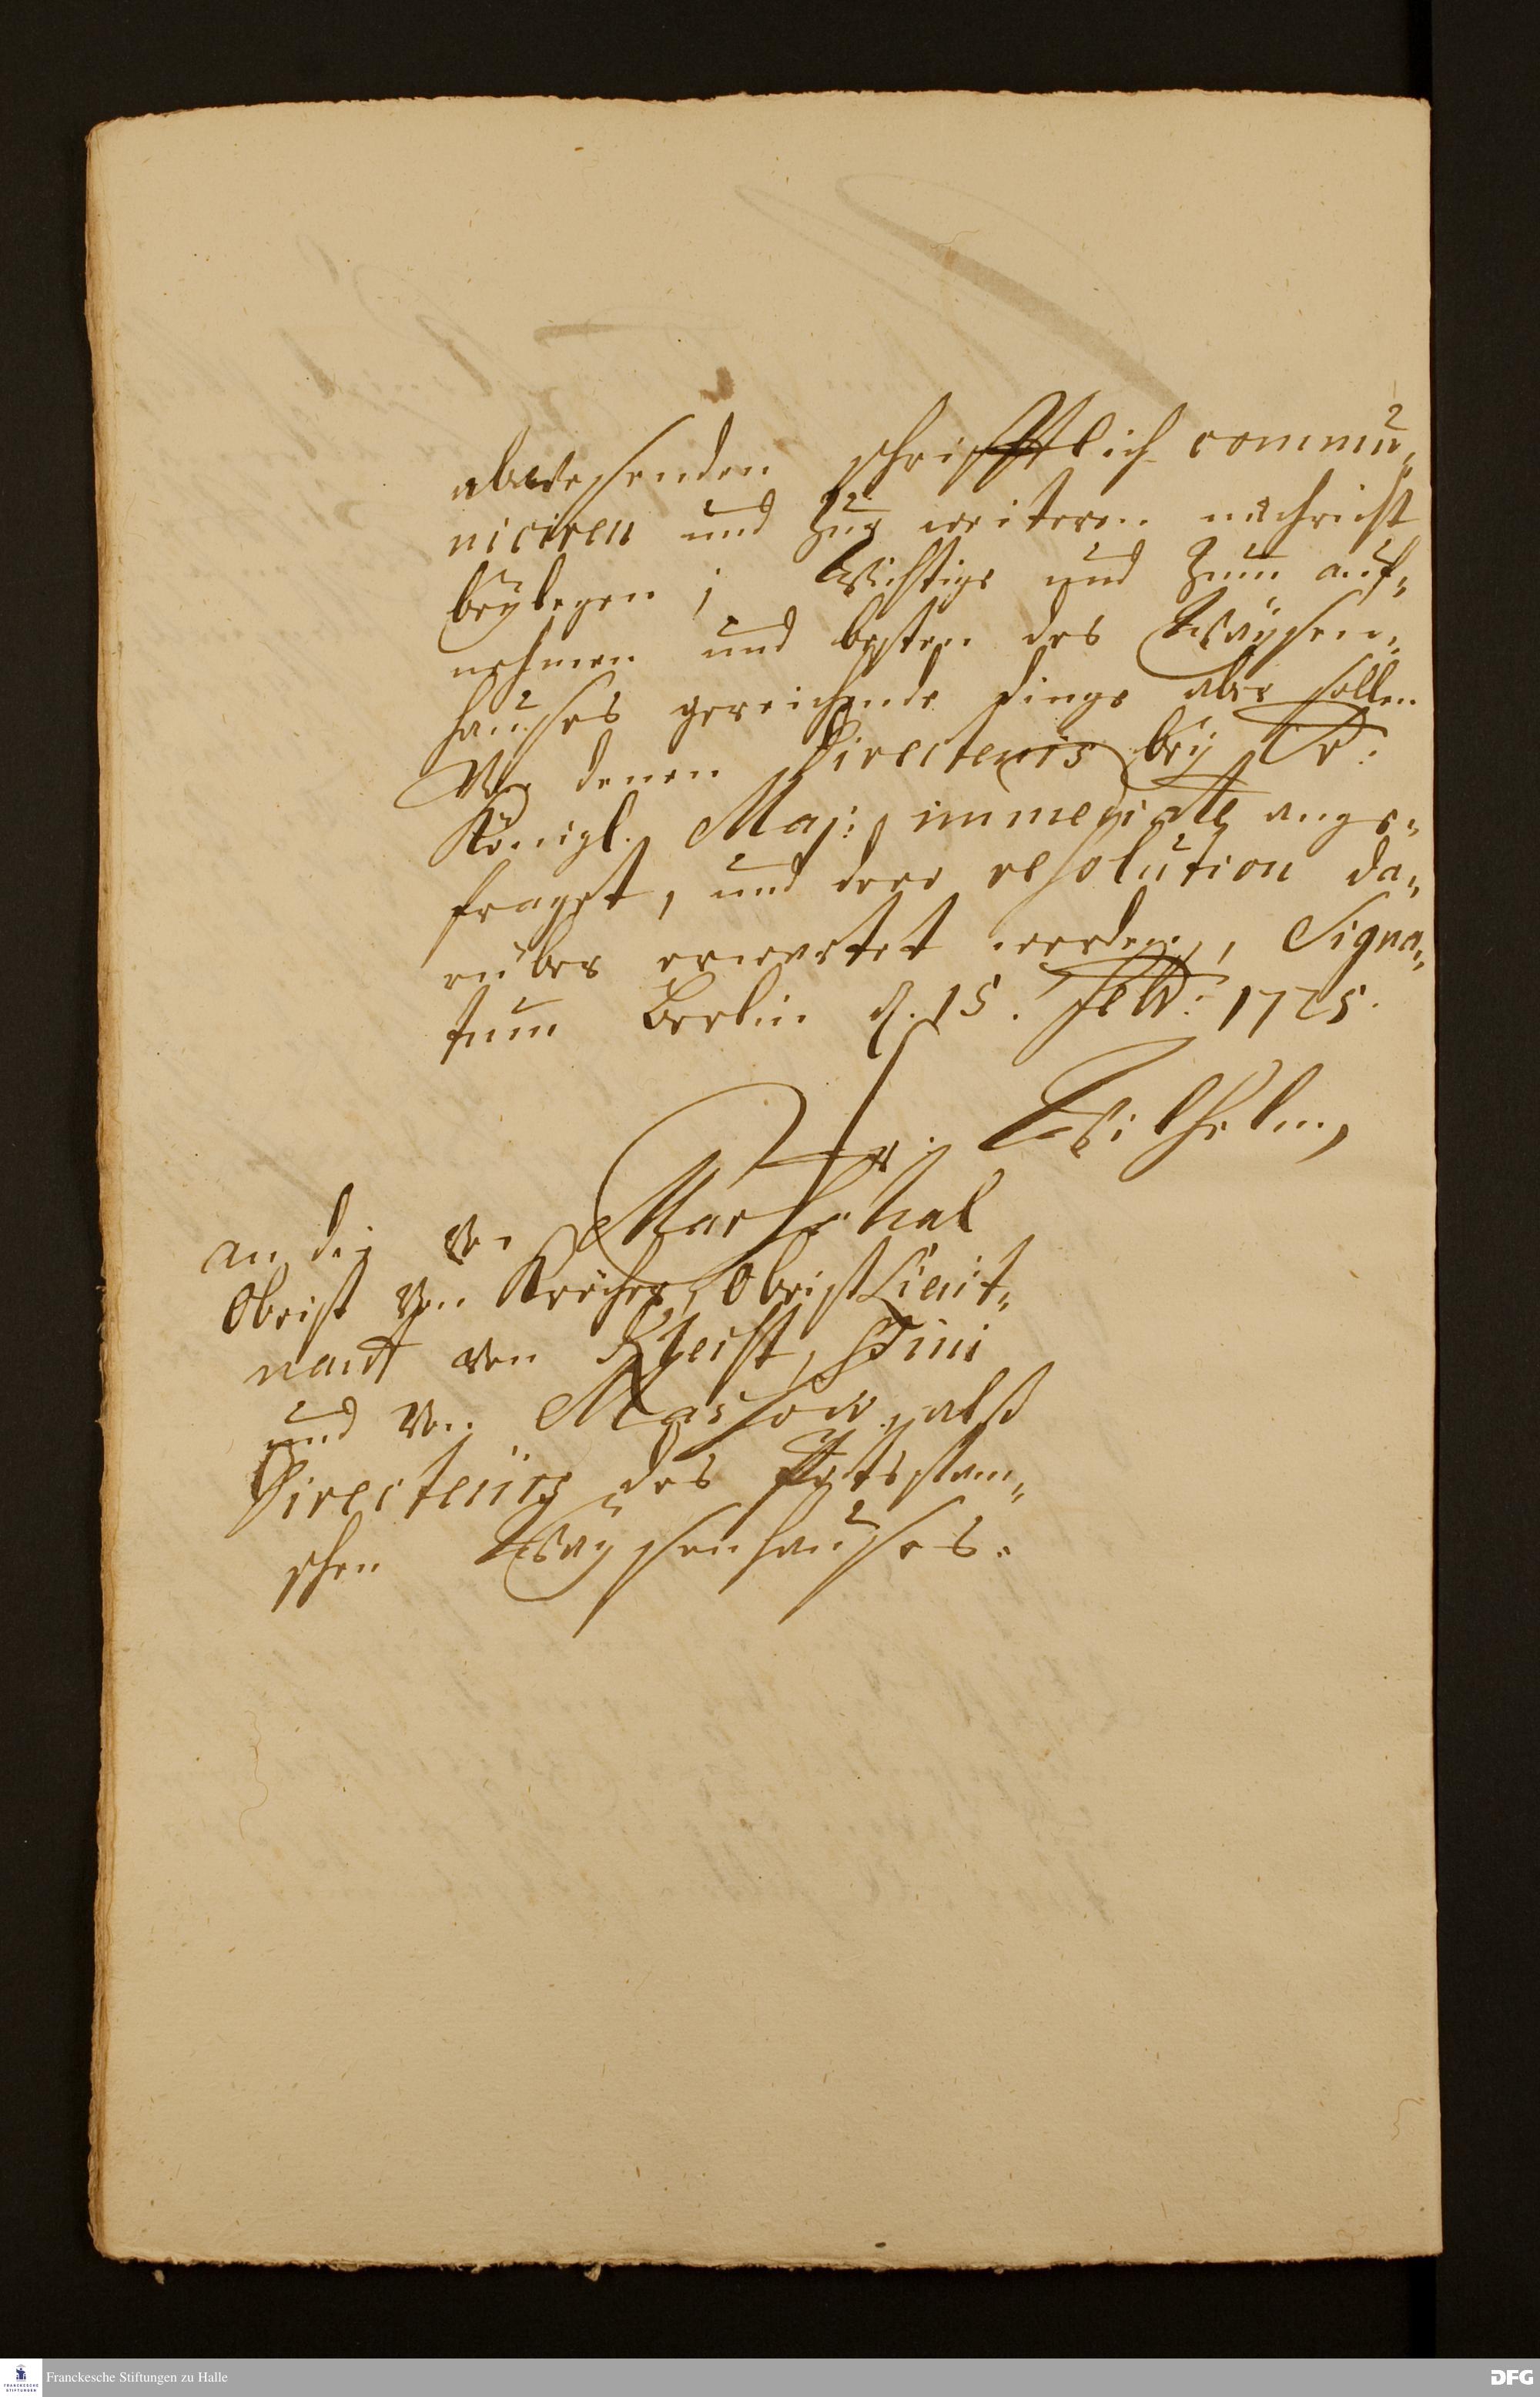 abwesenden schrifftlich commu„
niciren und zur weiteren nachricht
beylegen; Wichtige und zum auf„
nehmen und besten des Waysen„
hauses gereichende dinge aber sollen
Von denen Directeurs bey Sr:
Königl. Maj: immediate ange„
fraget, und dero resolution da„
rüber erwartet werden, Signa„
tum Berlin d. 15. Febr: 1725.
Fr: Wilhelm,
an die von Marschal
Obrist von Kröcher, Obrist Lieut„
nant von Kleist,
und von Massow, alß
Directeürs des Potsdam„
schen Waysenhauses.
Franckesche Stiftungen zu Halle
FRANCKESCHE STIFTUNGEN
DFG